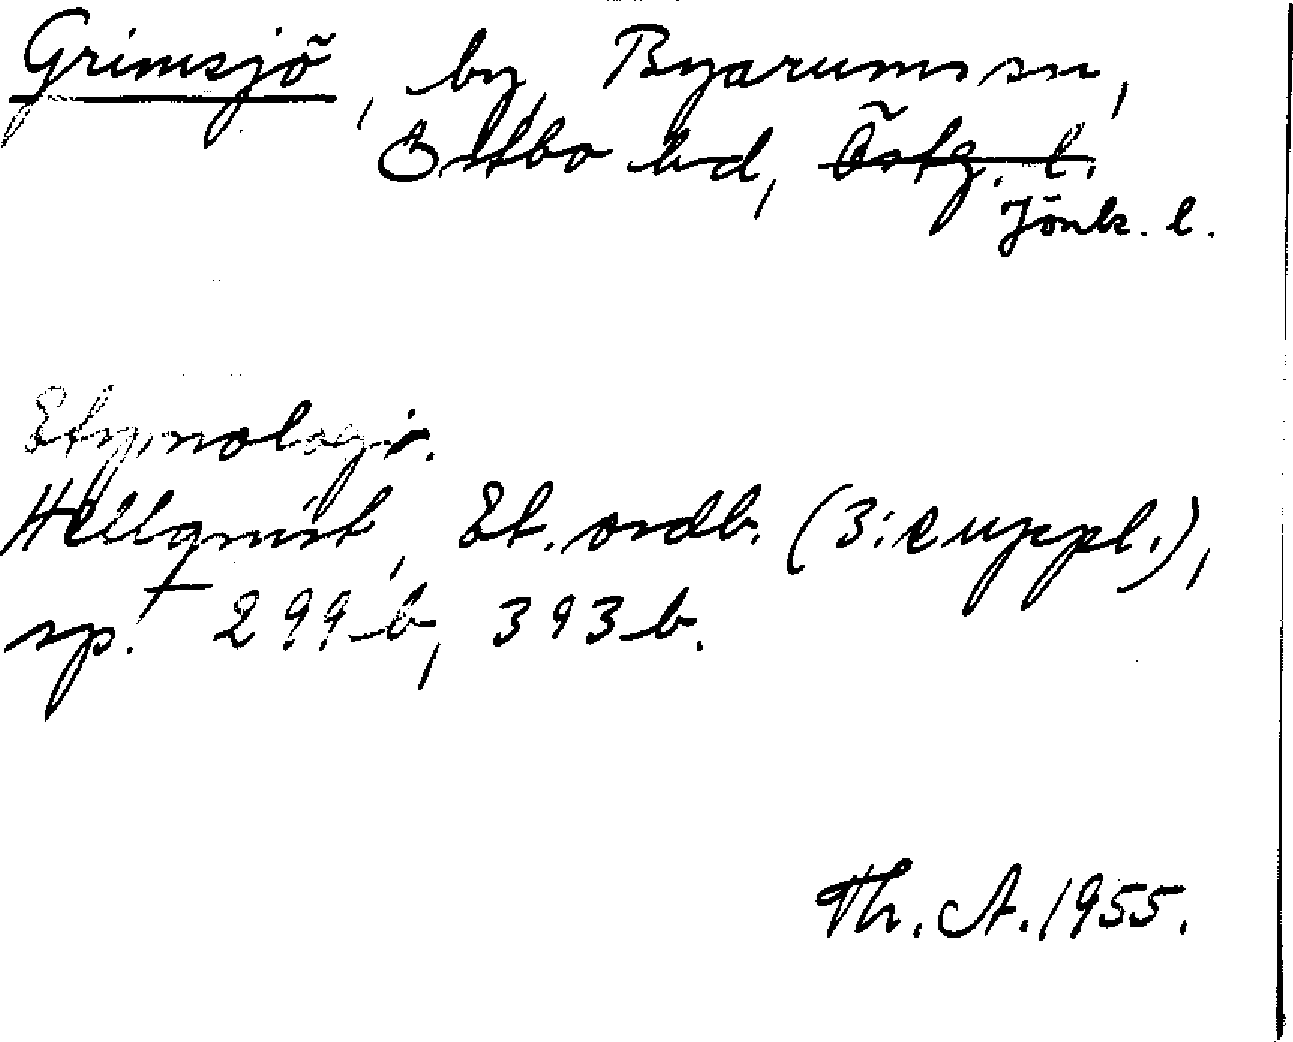 Grimsjö, by, Byarums sn,
Östbo hd, Östg. l.
Jönk. l.
Etymologi.
Hellquist, Et. ordb. (3:e uppl.),
sp. 299 b, 393 b.
Th. A. 1955.